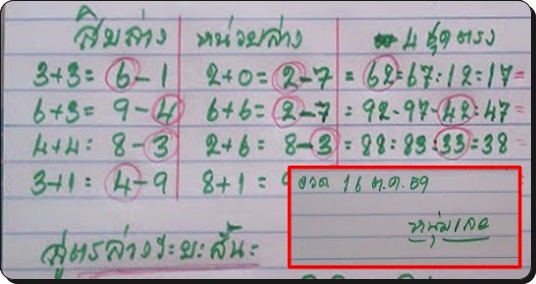 สิบล่าง หน่วยล่าง 4 ชุดตรง
3+3= 6-1 2+0= 2-7 = 62=67:12=17=
6+3= 9-4 6+6= 2-7 = 92-97-42=47
4+4: 8-3 2+6: 8-3 = 88:83:33=38
3+1: 4-9 8+1:
งวด 16 ต.ค. 59
หนุ่มเลย
สูตรล่างระยะสั้น: